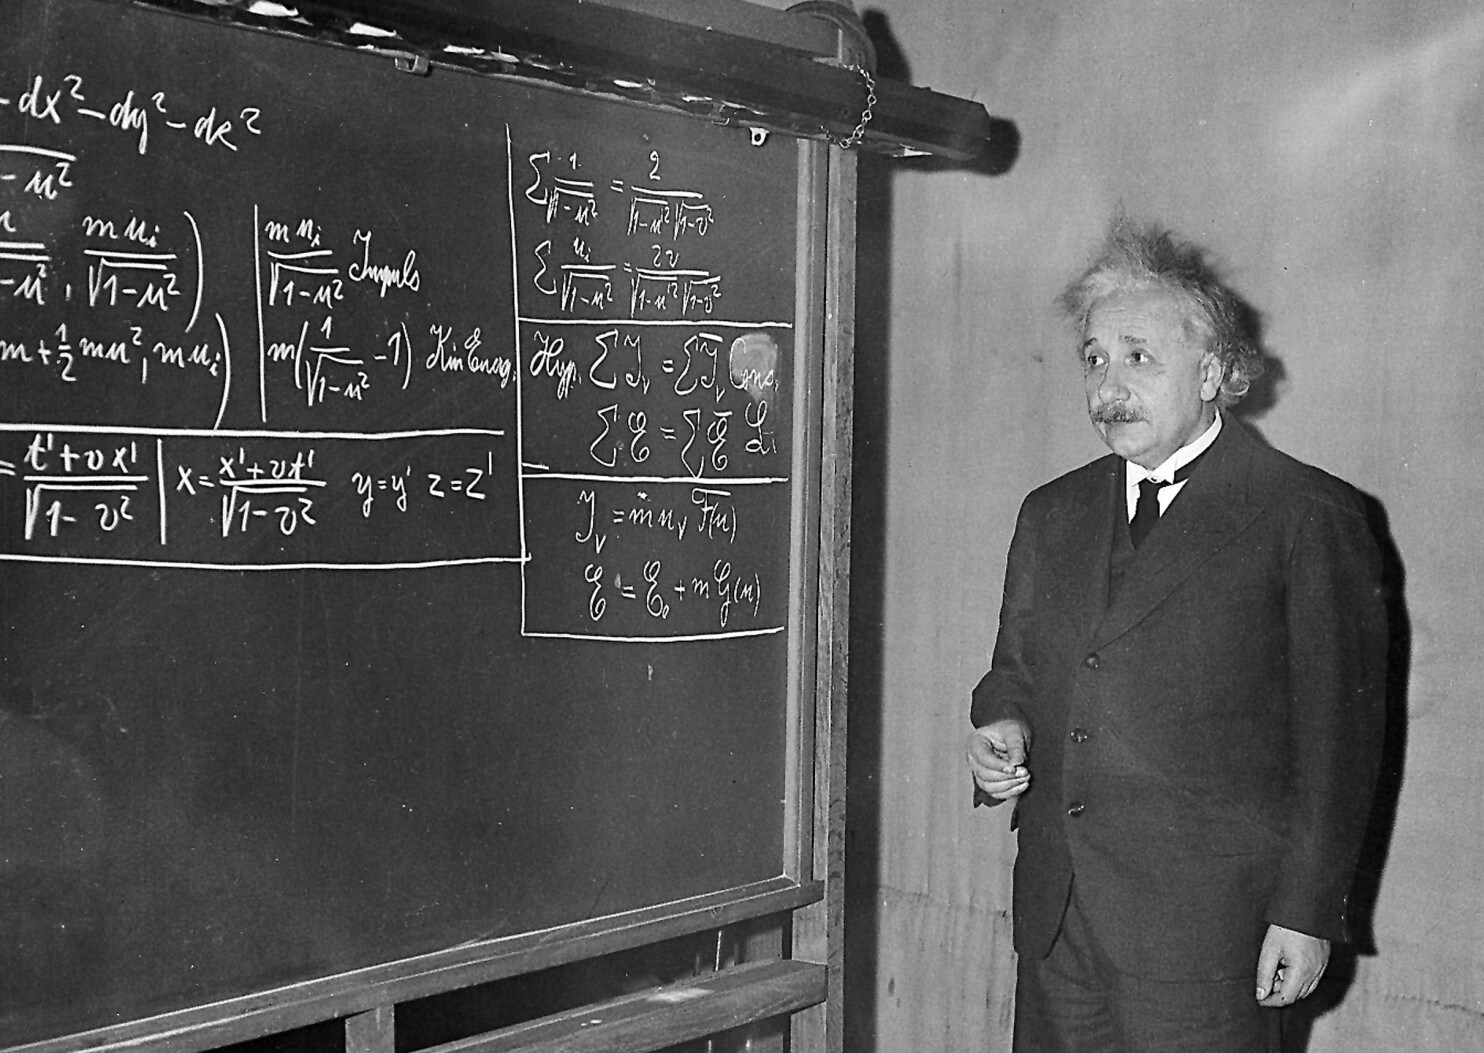 - dx² - dy² - dz²
- u²
m uᵢ / √(1-u²) )
m uᵢ / √(1-u²) Impuls
m + ½ mu², m uᵢ )
m( 1/√(1-u²) - 1) Kin Energ.
= (t' + v x') / √(1-v²) | x = (x' + v t') / √(1-v²) y = y' z = z'
∑ 1/√(1-u²) = 2 / √(1-u'²) √(1-v²)
∑ uᵢ/√(1-u²) = 2v / √(1-u'²) √(1-v²)
Hyp. ∑ I_ν = ∑ Ī_ν
∑ E = ∑ Ē
I_ν = m u_ν F(u)
E = E₀ + m G(u)